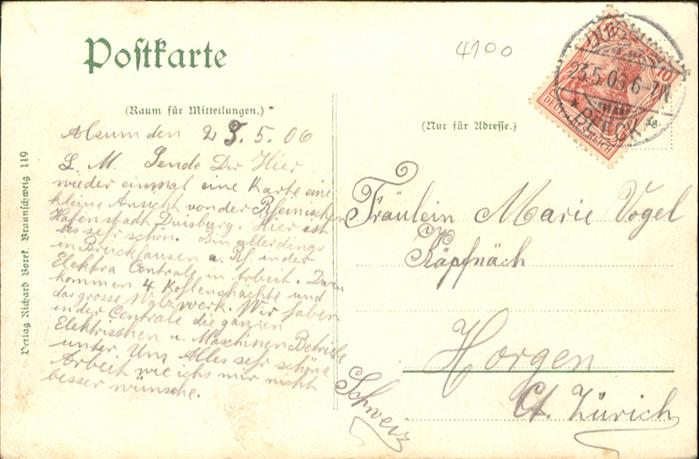 Postkarte
4100
(Raum für Mitteilungen.)
(Nur für Adresse.)
Alsum den 23.5.06
L. M. Sende Dir Hier
wieder einmal eine Karte eine
kleine Ansicht von der Rheinischen
Hafenstadt Duisburg. Hier ist
es sehr schön. Bin allerdings
in Bruckhausen a. Rh. in der
Elektra Centrale in Arbeit. Dazu
kommen 4 Kohlenschächte und
das grosse Walzwerk. Wir haben
in der Centrale die ganzen
Elektrischen u. Maschinen Betriebe
unter. Um Alles sehr schöne
Arbeit wie ichs mir nicht
besser wünsche.
Fräulein Marie Vogel
Käpfnach
Horgen
Ct. Zürich
Schweiz
Verlag Richard Borek, Braunschweig 119
23.5.06.6-7N
10
DEUTSCHES REICH